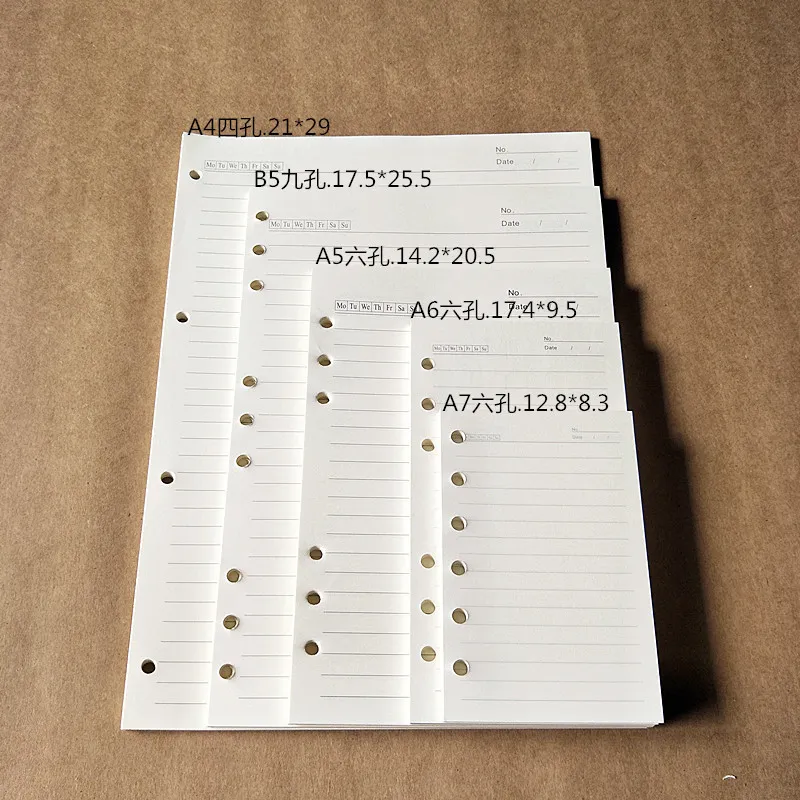 A4四孔.21*29
No.
Mo Tu We Th Fr Sa Su
Date / /
B5九孔.17.5*25.5
No.
Mo Tu We Th Fr Sa Su
Date / /
A5六孔.14.2*20.5
No.
Mo Tu We Th Fr Sa S
Date / /
A6六孔.17.4*9.5
No.
Mo Tu We Th Fr Sa Su
Date / /
A7六孔.12.8*8.3
No.
Date / /